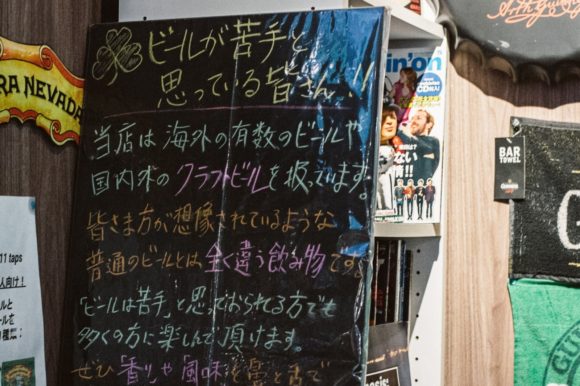 ビールが苦手と
思っている皆さん!!
当店は海外の有数のビールや
国内外のクラフトビールを扱ています。
皆さま方が想像されているような
普通のビールとは全く違う飲み物です。
「ビールは苦手」と思っておられる方でも
多くの方に楽しんで頂けます。
ぜひ「香り」や「風味」を
RA NEVADA
11 taps
人向け!
in'on
BAR
TOWEL
G
GU